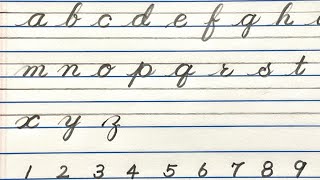 a b c d e f g h
m n o p q r s t
x y z
1 2 3 4 5 6 7 8 9